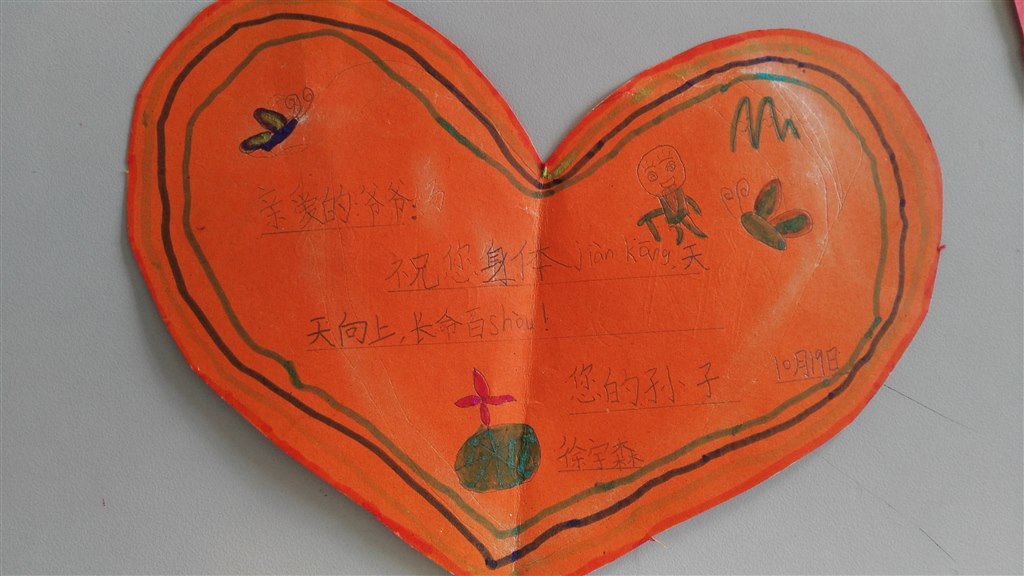 亲爱的爷爷:
祝您身体jiàn kāng,天
天向上,长命百shòu!
您的孙子
10月19日
徐宇森